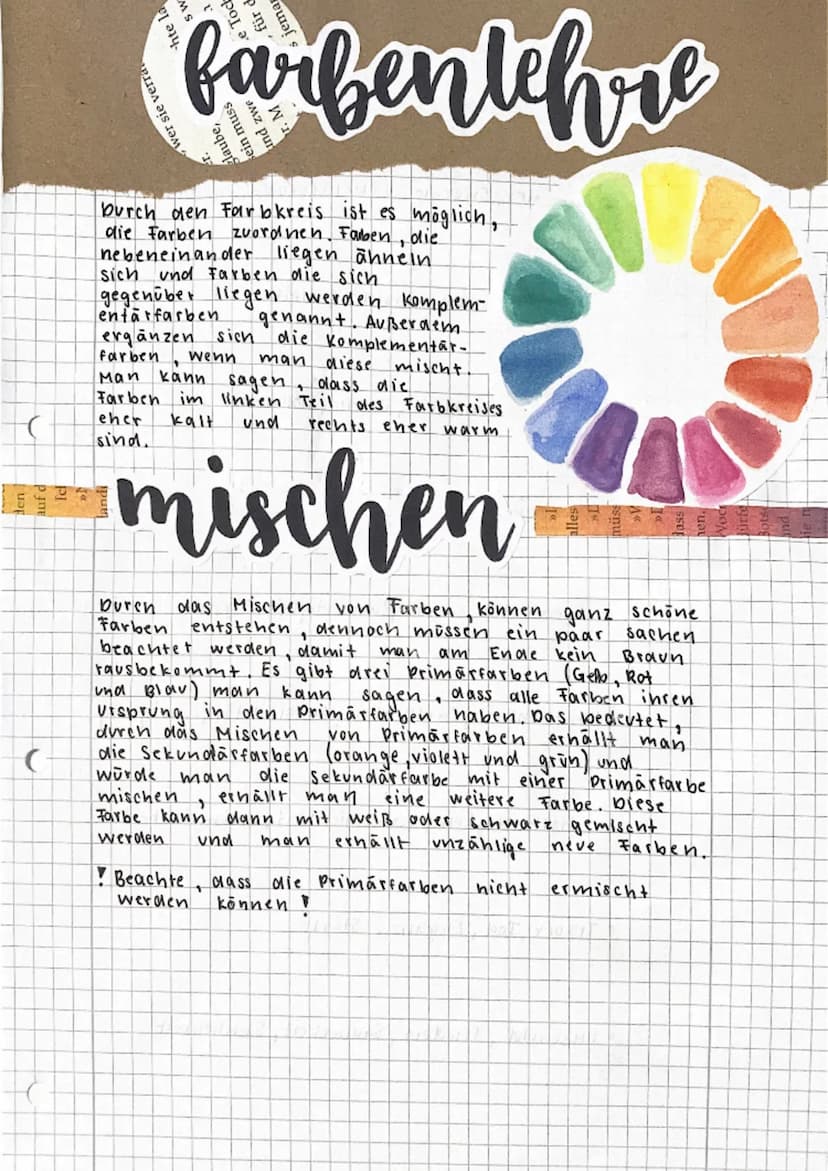 farbenlehre
Durch den Farbkreis ist es möglich,
die Farben zuordnen. Faben, die
nebeneinander liegen ähneln
sich und Farben die sich
gegenüber liegen werden Komplem-
entärfarben genannt. Außerdem
ergänzen sich die Komplementär-
farben, wenn man diese mischt.
Man kann sagen, dass die
Farben im linken Teil des Farbkreises
eher kalt und rechts eher warm
sind.
mischen
Durch das Mischen von Farben, können ganz schöne
Farben entstehen, dennoch müssen ein paar sachen
beachtet werden, damit man am Ende kein Braun
rausbekommt. Es gibt drei Primärfarben (Gelb, Rot
und Blau) man kann sagen, dass alle Farben ihren
Ursprung in den Primärfarben haben. Das bedeutet,
durch das Mischen von Primärfarben erhällt man
die Sekundärfarben (orange, violett und grün) und
würde man die Sekundärfarbe mit einer Primärfarbe
mischen, erhällt man eine weitere Farbe. Diese
Farbe kann dann mit weiß oder schwarz gemischt
werden und man erhällt unzählige neue Farben.
! Beachte, dass die Primärfarben nicht ermischt
werden können !